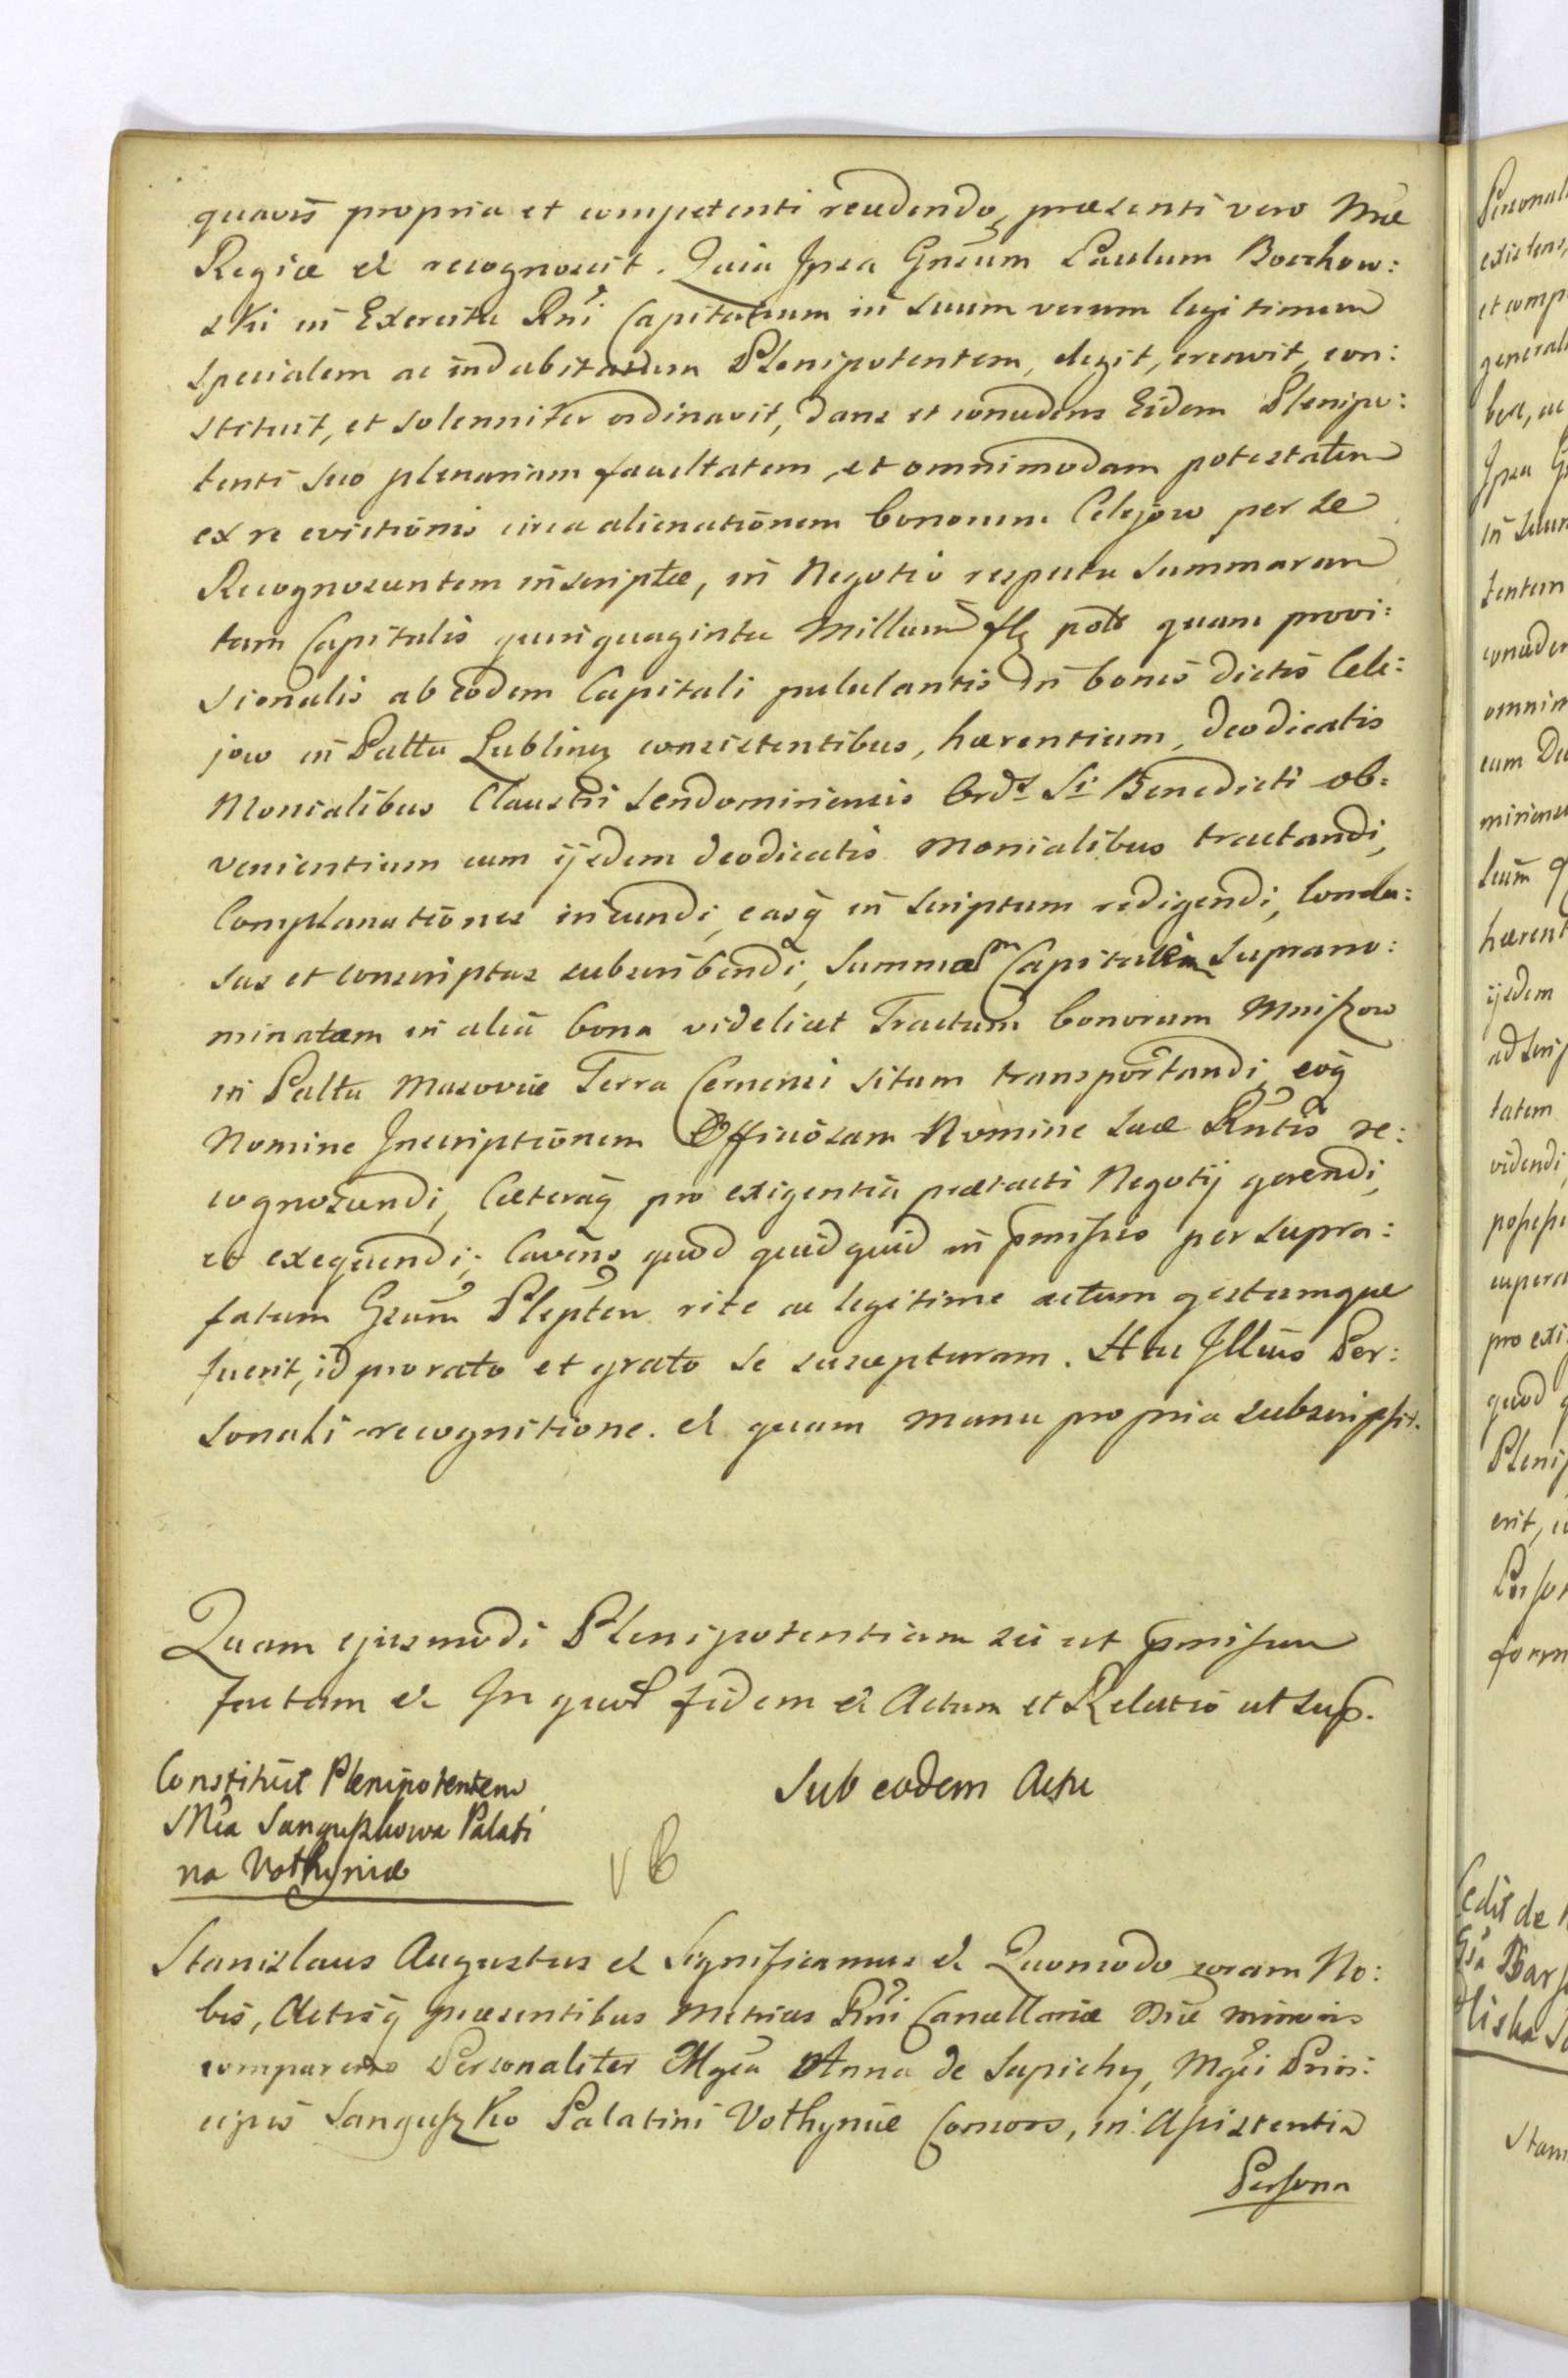 quavis propria et competenti recedendo, præsenti vero Mtæ
Regiæ et recognovit. Quia Ipsa Gnsum Paulum Borzkow:
ski in Exercitu Rni Capitaneum in suum verum legitimum
specialem ac indubitatum Plenipotentem, elegit, creavit, con:
stituit, et solenniter ordinavit, dans et concedens Eidem Plenipo:
tenti suo plenariam facultatem, et omnimodam potestatem
ex re evictionis circa alienationem bonorum Celejow per se
Recognoscentem inscriptæ, in Negotio respectu summarum
tam Capitalis quinquaginta Millium flg polo quam provi:
sionalis ab eodem Capitali pululantis in bonis dictis Cele:
jow in Palttu Lubling consistentibus, hærentium, deodicatis
Monialibus Claustri Sendomiriensis Ords Si Benedicti ob:
venientium cum ijsdem deodicatis Monialibus tractandi,
Complanationes ineundi, easq in scriptum redigendi, Conclu:
sas et conscriptas subscribendi, Summam Capitalem Suprano:
minatam in alia bona videlicet Tractum bonorum Mniszow
in Palttu Masoviæ Terra Cernensi situm transportandi, eoq
Nomine Inscriptionem Officiosam Nomine suæ Rntis re:
cognoscendi, Cæteraq pro exigentia prætacti Negotij gerendi,
et exequendi; Cavens quod quidquid in pmissis per supra:
fatum Gsum Pleptem rite ac legitime actum gestumque
fuerit, id pro rato et grato se suscepturam. Hac Illius Per:
sonali recognitione. et quam manu propria subscripsit.
Quam ejusmodi Plenipotentiam sic ut pmissum
factam et In quor fidem et Actum et Relatio ut sup.
Constituit Plenipotentem
Mca Sanguszkowa Palati
na Volhyniæ
Sub eodem Actu
Stanislaus Augustus et Significamus et Quomodo coram No:
bis, Actisq præsentibus Metrices Rni Cancellariæ Nræ minoris
comparens Personaliter Mgca Anna de Sapiehy, Mgci Prin:
cipis Sanguszko Palatini Volhyniæ Consors, in Assistentia
Persona